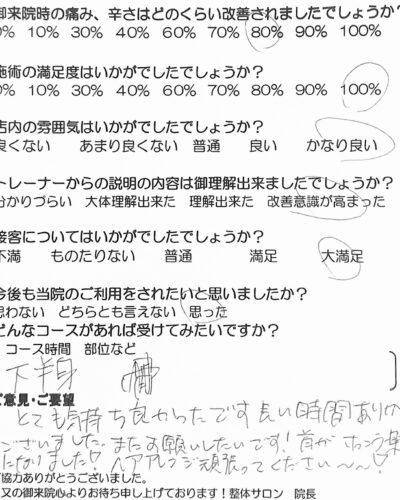 御来院時の痛み、辛さはどのくらい改善されましたでしょうか?
0% 10% 30% 40% 60% 70% 80% 90% 100%
施術の満足度はいかがでしたでしょうか?
0% 10% 30% 40% 60% 70% 80% 90% 100%
店内の雰囲気はいかがでしたでしょうか?
良くない あまり良くない 普通 良い かなり良い
トレーナーからの説明の内容は御理解出来ましたでしょうか?
分かりづらい 大体理解出来た 理解出来た 改善意識が高まった
接客についてはいかがでしたでしょうか?
不満 ものたりない 普通 満足 大満足
今後も当院のご利用をされたいと思いましたか?
思わない どちらとも言えない 思った
どんなコースがあれば受けてみたいですか?
コース時間 部位など
下半身
ご意見・ご要望
とても気持ち良かったです 長い時間ありが
とうございました。またお願いしたいです! 首がちょう楽
になりました! ヘアアレンジ頑張ってください〜〜♡
ご協力ありがとうございました。
又の御来院心よりお待ち申し上げております!整体サロン 院長